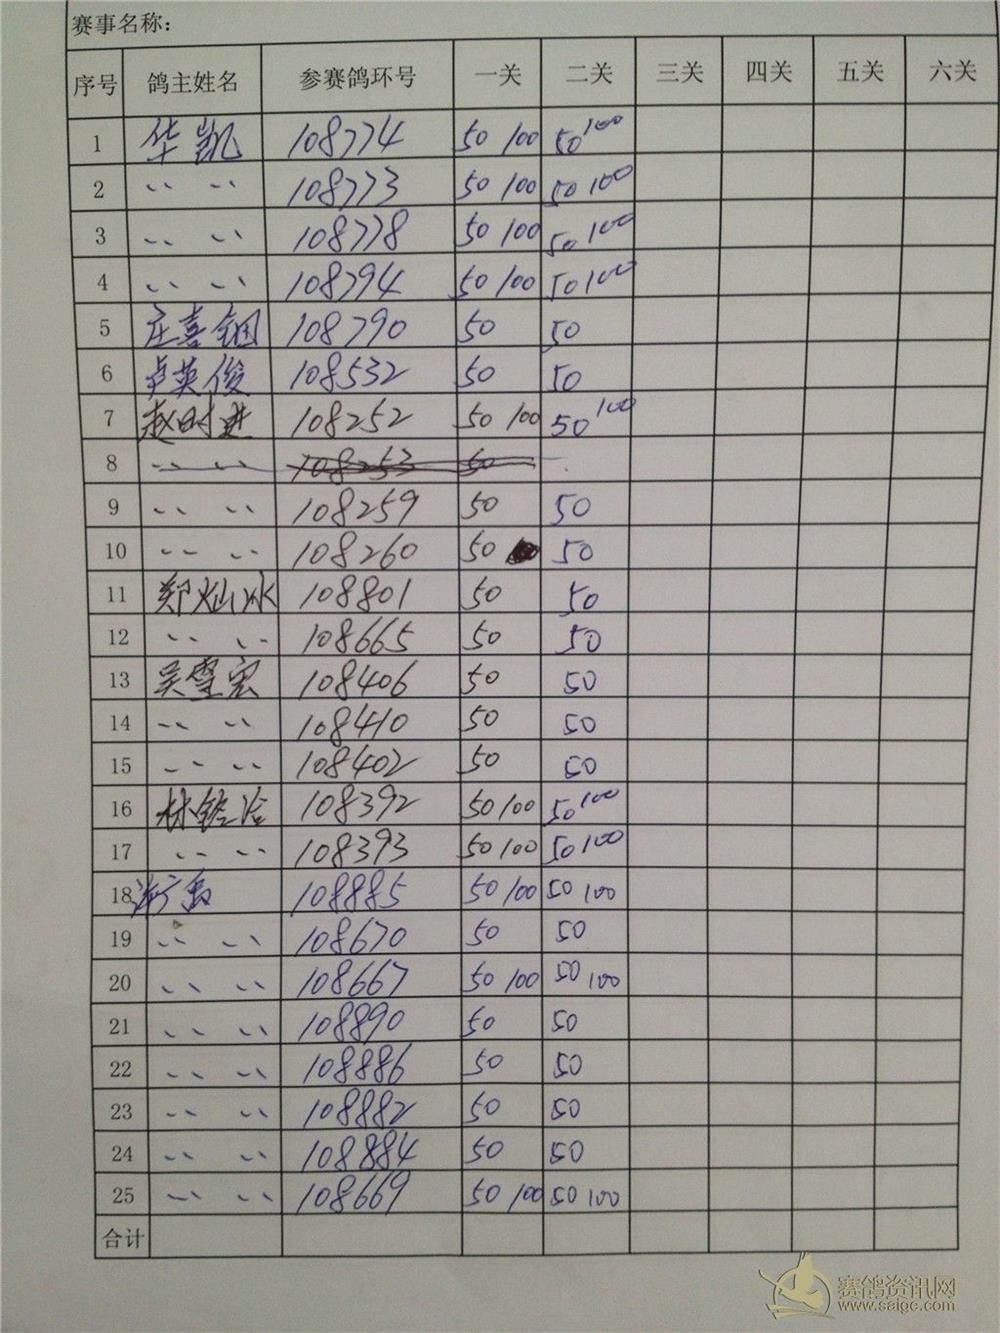 赛事名称：
序号 鸽主姓名 参赛鸽环号 一关 二关 三关 四关 五关 六关
1 华凯 108774 50 100 50 100
2 〃 〃 108773 50 100 50 100
3 〃 〃 108778 50 100 50 100
4 〃 〃 108794 50 100 50 100
5 庄喜钿 108790 50 50
6 卢英俊 108532 50 50
7 赵时进 108252 50 100 50 100
8 〃 〃 108253 50
9 〃 〃 108259 50 50
10 〃 〃 108260 50 50
11 郑灿冰 108801 50 50
12 〃 〃 108665 50 50
13 吴雪宏 108406 50 50
14 〃 〃 108410 50 50
15 〃 〃 108402 50 50
16 林 108392 50 100 50 100
17 〃 〃 108393 50 100 50 100
18 许广 108885 50 100 50 100
19 〃 〃 108670 50 50
20 〃 〃 108667 50 100 50 100
21 〃 〃 108890 50 50
22 〃 〃 108886 50 50
23 〃 〃 108882 50 50
24 〃 〃 108884 50 50
25 〃 〃 108669 50 100 50 100
合计
赛鸽资讯网
www.saigc.com